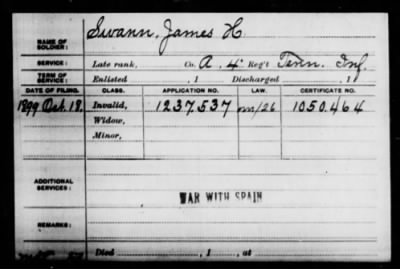 NAME OF SOLDIER: Swann, James H
SERVICE: Late rank, Co. A, 4" Reg't Tenn. Inf.
TERM OF SERVICE: Enlisted , 1 Discharged , 1
DATE OF FILING. CLASS. APPLICATION NO. LAW. CERTIFICATE NO.
1899 Oct. 18. Invalid, 1237.537 1050.464
Widow,
Minor,
ADDITIONAL SERVICES:
WAR WITH SPAIN
REMARKS:
Died , 1 , at